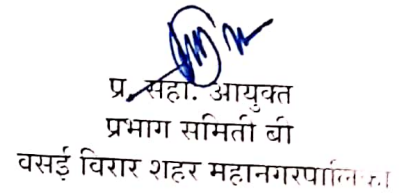 प्र. सहा. आयुक्त
प्रभाग समिती बी
वसई विरार शहर महानगरपालिका